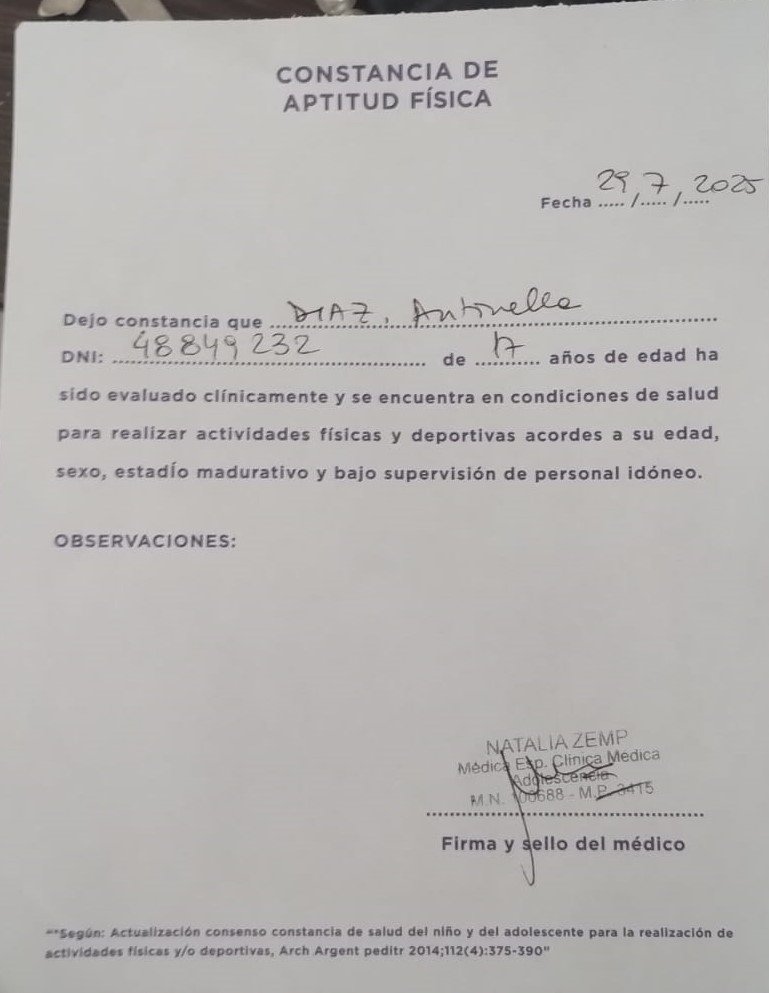 CONSTANCIA DE
APTITUD FÍSICA
29, 7, 2025
Fecha ..... /..... /.....
Dejo constancia que DIAZ, Antonella
DNI: 48849232 de 17 años de edad ha
sido evaluado clínicamente y se encuentra en condiciones de salud
para realizar actividades físicas y deportivas acordes a su edad,
sexo, estadío madurativo y bajo supervisión de personal idóneo.
OBSERVACIONES:
NATALIA ZEMP
Médica Esp. Clínica Médica
Adolescencia
M.N. 100688 - M.P. 3415
Firma y sello del médico
"*Según: Actualización consenso constancia de salud del niño y del adolescente para la realización de
actividades físicas y/o deportivas, Arch Argent peditr 2014;112(4):375-390"